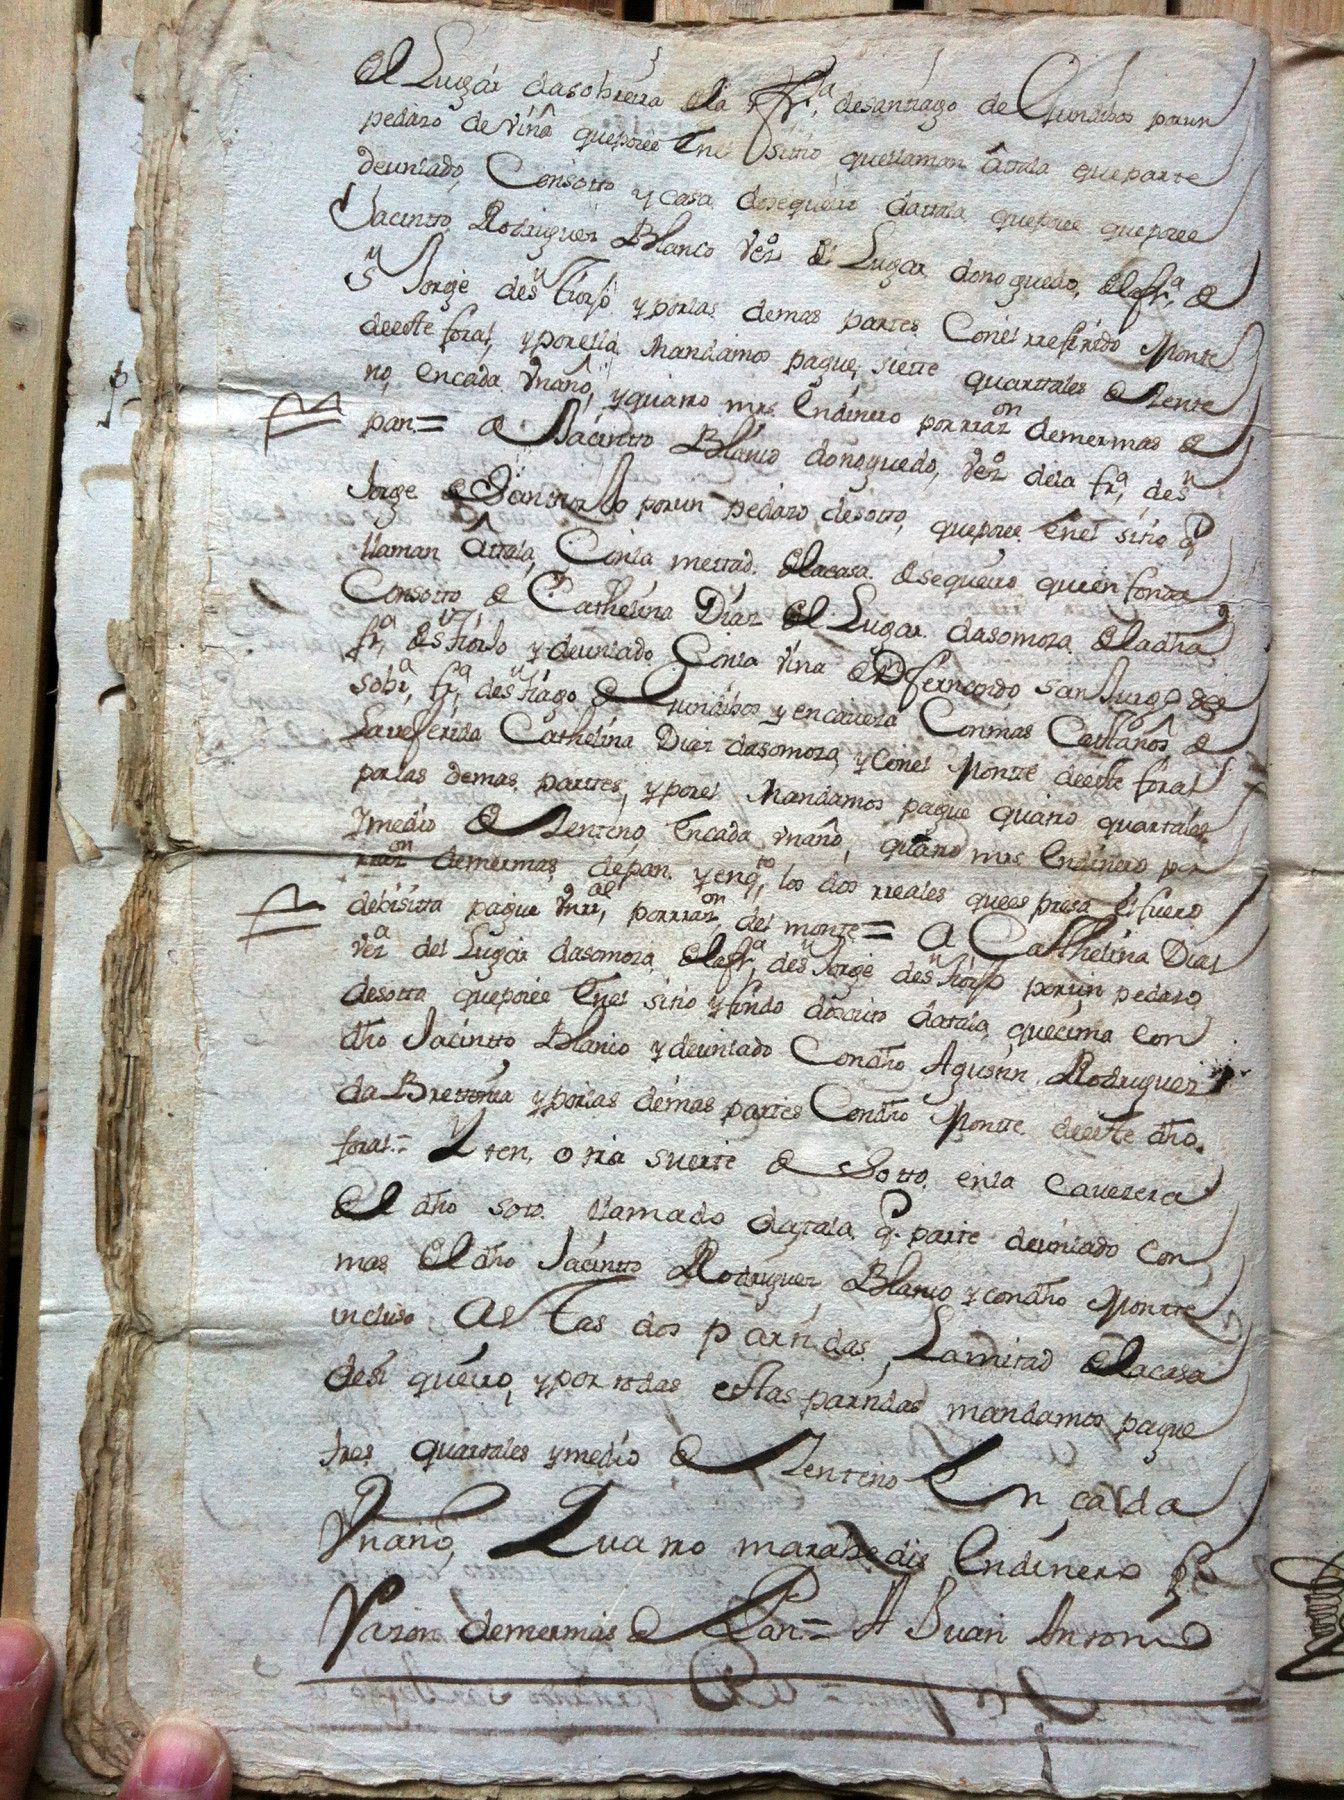 el Lugar dasobreira de la frª, desantiago de Gundibos porun
pedazo deviña queposee Enel sitio quellaman Atala queparte
deunlado, Consotto y casa desequeiro datala queposee queposee
Jacintto Rodriguez Blanco vezº del Lugar donoguedo, dela frª de
Sn Jorge desn tiorjo y porlas demas partes Conel rreferido Monte
deeste foral, y porella Mandamos pague, siette quarttales de Zente
no, encada Vnaño, y quatro mrs. Endinero por rrazon demermas de
pan = A Jacintto Blanco donoguedo, vezº dela frª, desn
Jorge de Santiorjo porun pedazo desotto, queposee Enel sitio q
llaman Attala, Conla mettad dela casa desequeiro quien fonda
Consotto de Cathelina Diaz del Lugar dasomoza dela dha
frª, desn tiorjo y deunlado Conla viña de Dn fernando
sobrª, frª, desn tiago de Gundibos y encavera Conmas Casttaños de
Lareferida Cathelina Diaz dasomoza, y Conel Montte deeste foral
porlas demas partes, y porel Mandamos pague quatro quartales
Ymedio de Zenteno, Encada vnaño, quatro mrs Endinero por
rrazon demermas depan y enqto, los dos rreales quees presa el fuero
debisitta pague Vnrral, porrrazon del monte = A Cathelina Diaz
vezª del Lugar dasomoza dela frª desn Jorge desn tiorjo porun pedazo
desotto queposee Enel sitio y fondo datala, quecima Con
dho Jacintto Blanco y deunlado Condho Agustin Rodriguez
da Brettoña y porlas demas partes Condho Montte deeste dho
foral = Yten, otra suerte de Sotto enla Cavezera
del dho soto llamado datala q. parte deunlado con
mas del dho Jacintto Rodriguez Blanco y condho Montte
incluso Astas dos partidas, Lamitad delacasa
desi queiro, y por todas estas partidas mandamos pague
tres quartales y medio de Zenteno En cada
Vnaño, Quatro marabedis Endinero por
Razon demermas de Pan = A Juan Antonio